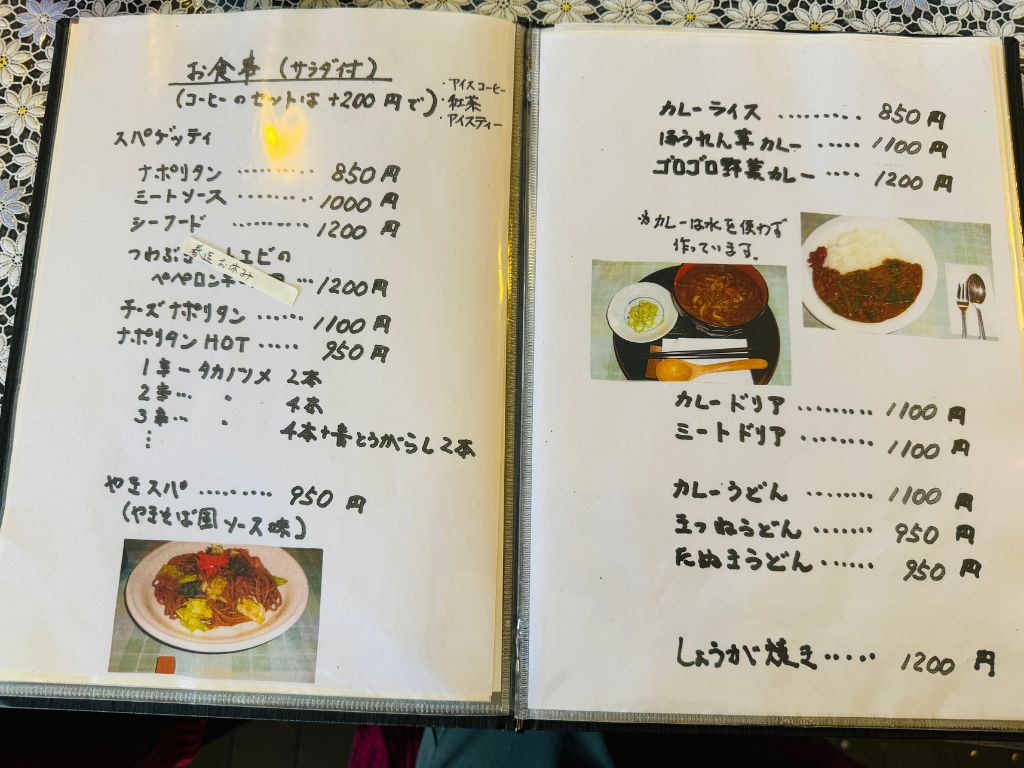 お食事 (サラダ付)
(コーヒーのセットは +200円で)
・アイスコーヒー
・紅茶
・アイスティー
スパゲッティ
ナポリタン ………… 850円
ミートソース ………… 1000円
シーフード ………… 1200円
つわぶ エビの
ペペロンチ … 1200円
最近お休み
チーズナポリタン …… 1100円
ナポリタンHOT …… 950円
1辛ータカノツメ 2本
2辛… 〃 4本
3辛… 〃 4本+青とうがらし2本
⋮
やきスパ ……… 950円
(やきそば風ソース味)
カレーライス ……… 850円
ほうれん草カレー …… 1100円
ゴロゴロ野菜カレー …… 1200円
※カレーは水を使わず
作っています。
カレードリア ……… 1100円
ミートドリア ……… 1100円
カレーうどん ……… 1100円
きつねうどん ……… 950円
たぬきうどん ……… 950円
しょうが焼き …… 1200円